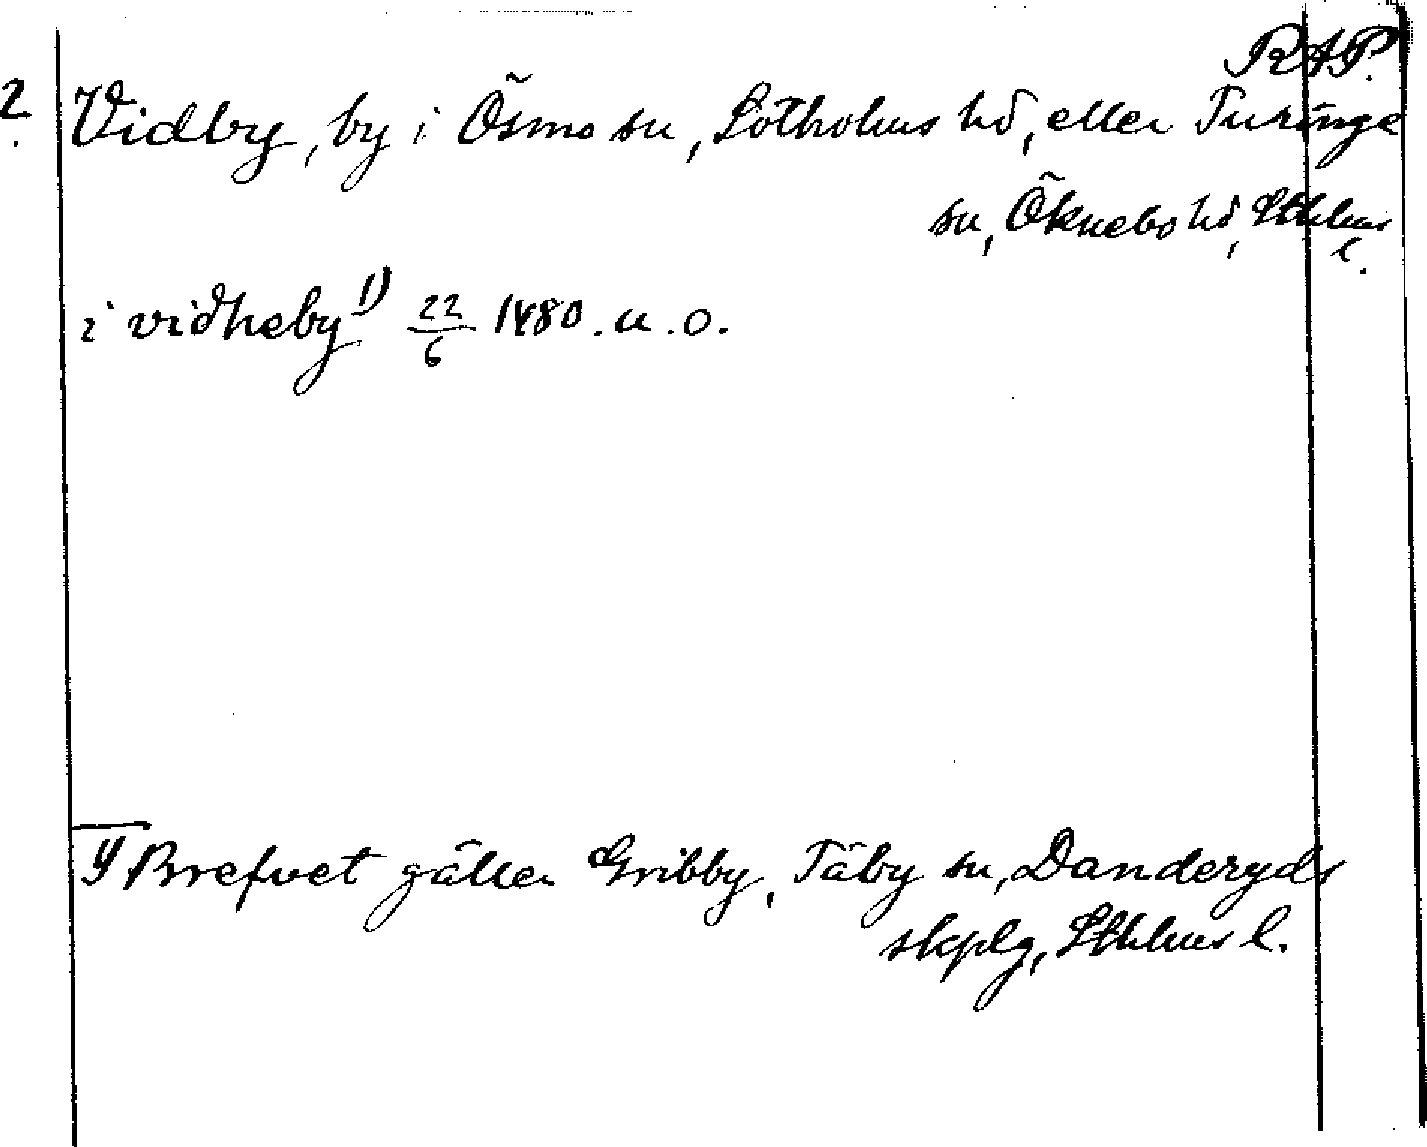 RAP.
2. Vidby, by i Ösmo sn, Sotholms hd, eller Turinge
sn, Öknebo hd, Sthlms
l.
i vidheby 1) 22/6 1480. u. o.
1) Brefvet gäller Gribby, Täby sn, Danderyds
skplg, Sthlms l.